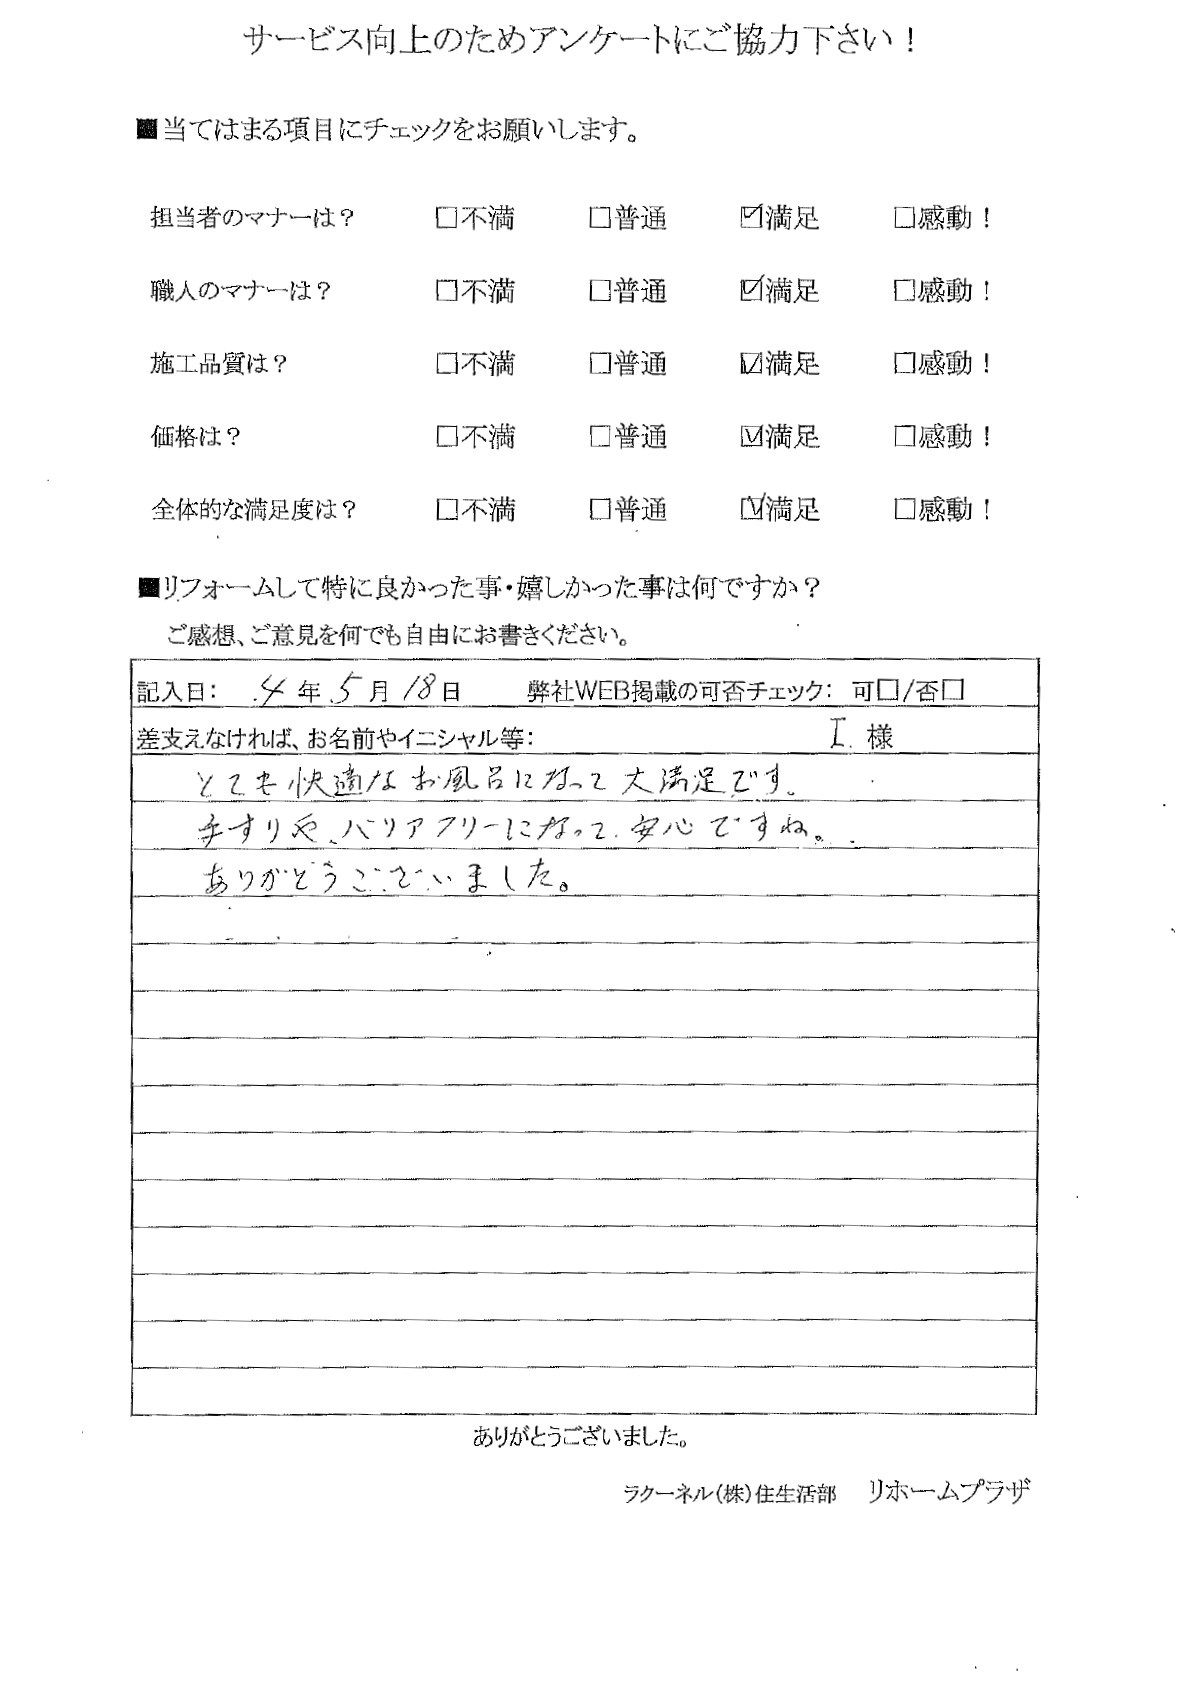 サービス向上のためアンケートにご協力下さい！
■当てはまる項目にチェックをお願いします。
担当者のマナーは？ □不満 □普通 ☑満足 □感動！
職人のマナーは？ □不満 □普通 ☑満足 □感動！
施工品質は？ □不満 □普通 ☑満足 □感動！
価格は？ □不満 □普通 ☑満足 □感動！
全体的な満足度は？ □不満 □普通 ☑満足 □感動！
■リフォームして特に良かった事・嬉しかった事は何ですか？
ご感想、ご意見を何でも自由にお書きください。
記入日： 4年5月18日 弊社WEB掲載の可否チェック： 可□/否□
差支えなければ、お名前やイニシャル等： I.様
とても快適なお風呂になって大満足です。
手すりや、バリアフリーになって、安心ですね。
ありがとうございました。
ありがとうございました。
ラクーネル（株）住生活部 リホームプラザ